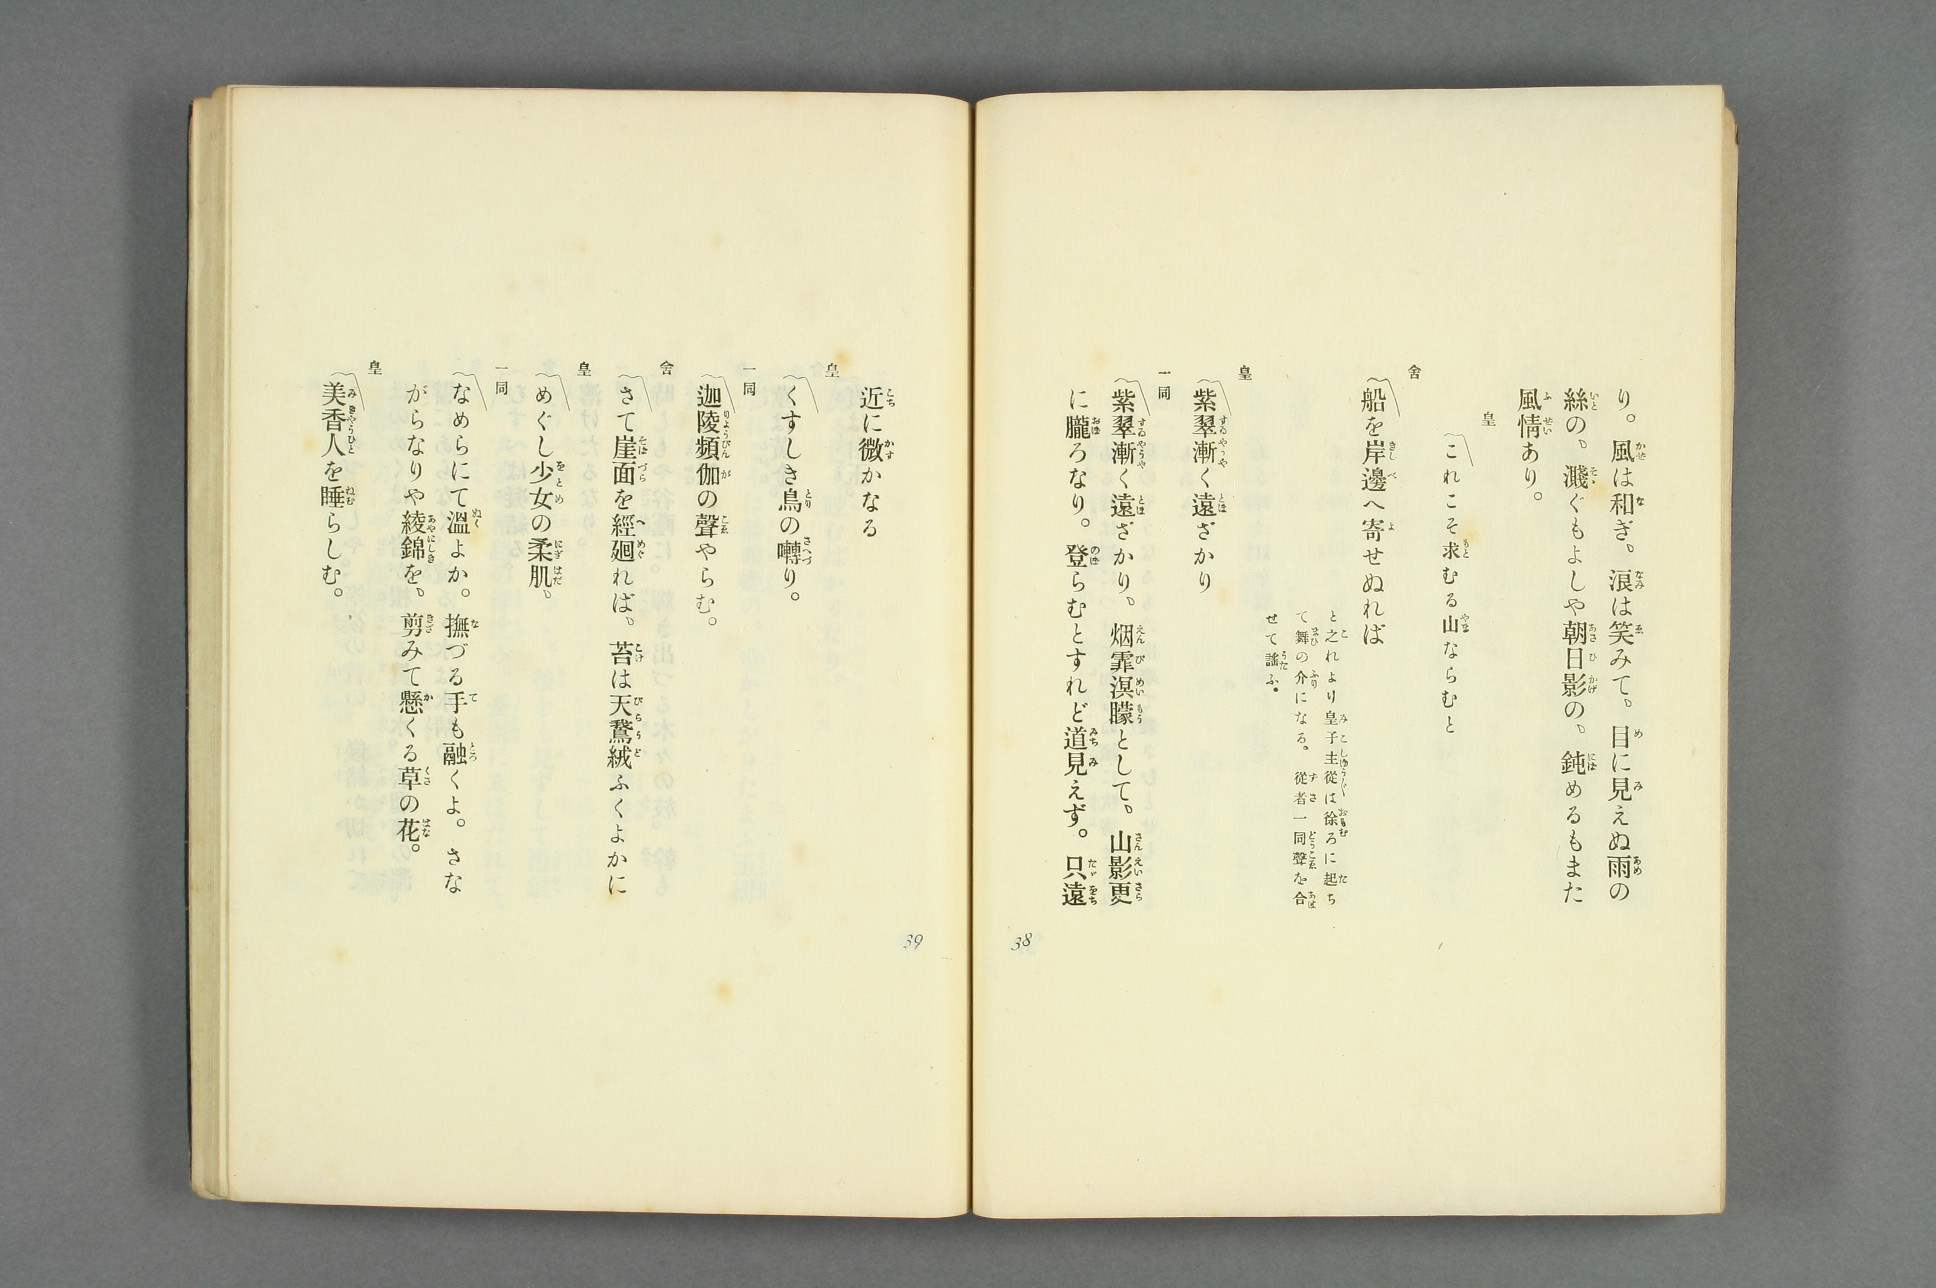 り。風は和ぎ、浪は笑みて、目に見えぬ雨の
絲の、濺ぐもよしや朝日影の、鈍めるもまた
風情あり。
皇
〽これこそ求むる山ならむと
舍
〽船を岸邊へ寄せぬれば
と之れより皇子主從は徐ろに起ち
て舞の介になる。從者一同聲を合
せて謡ふ。
皇
〽紫翠漸く遠ざかり
一同
〽紫翠漸く遠ざかり、烟霏溟朦として、山影更
に朧ろなり。登らむとすれど道見えず。只遠
38
近に微かなる
皇
〽くすしき鳥の囀り。
一同
〽迦陵頻伽の聲やらむ。
舍
〽さて崖面を經廻れば、苔は天鵞絨ふくよかに
皇
〽めぐし少女の柔肌、
一同
〽なめらにて溫よか。撫づる手も融くよ。さな
がらなりや綾錦を、剪みて懸くる草の花。
皇
〽美香人を睡らしむ。
39